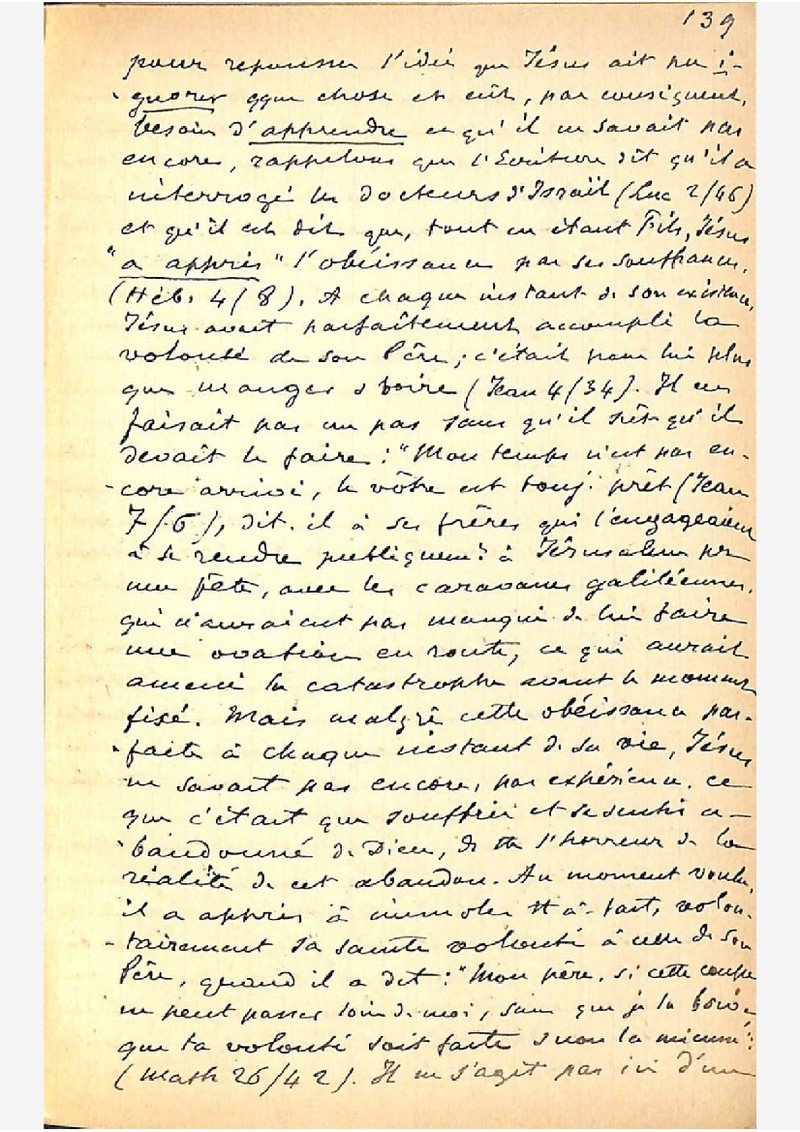 139
pour repousser l'idée que Jésus ait pu i-
gnorer qque chose et eût, par conséquent,
besoin d'apprendre ce qu'il ne savait pas
encore, rappelons que l'Ecriture dit qu'il a
interrogé les docteurs d'Israël (Luc 2/46)
et qu'il est dit que, tout en étant Fils, Jésus
"a appris" l'obéissance par ses souffrances.
(Héb. 4/8). A chaque instant de son existence,
Jésus avait parfaitement accompli la
volonté de son Père; c'était pour lui plus
que manger & boire (Jean 4/34). Il ne
faisait pas un pas sans qu'il sût qu'il
devait le faire: "Mon temps n'est pas en-
core arrivé, le vôtre est touj. prêt (Jean
7/6), dit-il à ses frères qui l'engageaient
à se rendre publiquemt à Jérusalem pr
une fête, avec les caravanes galiléennes,
qui n'auraient pas manqué de lui faire
une ovation en route, ce qui aurait
amené la catastrophe avant le moment
fixé. Mais malgré cette obéissance par-
faite à chaque instant de sa vie, Jésus
ne savait pas encore, par expérience, ce
que c'était que souffrir et se sentir a-
bandonné de Dieu, de tte l'horreur de la
réalité de cet abandon. Au moment voulu,
il a appris à immoler tt à-fait, volon-
tairement sa sainte volonté à celle de son
Père, quand il a dit: "Mon père, si cette coupe
ne peut passer loin de moi, sans que je la boive
que ta volonté soit faite & non la mienne":
(Math 26/42). Il ne s'agit pas ici d'une